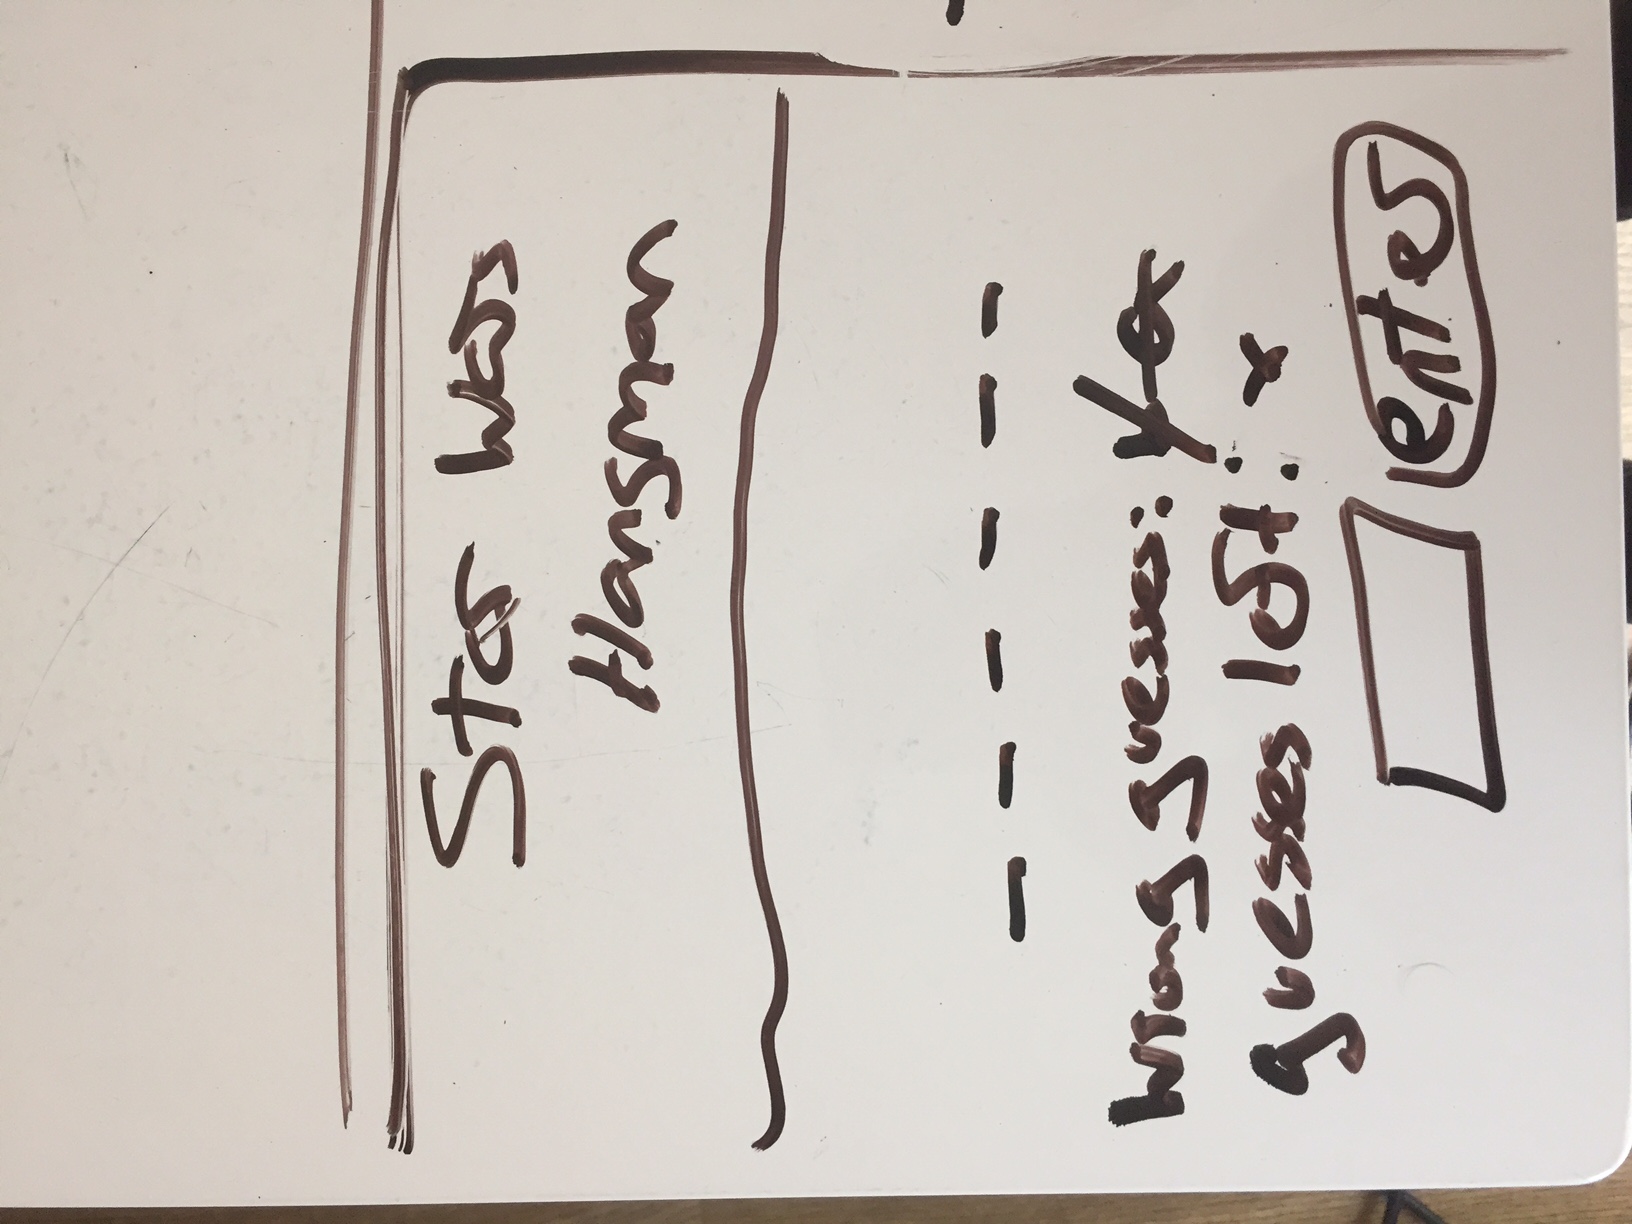 Star Wars
Hangman
_ _ _ _ _ _
Wrong guesses: y a
guesses left: x
enter